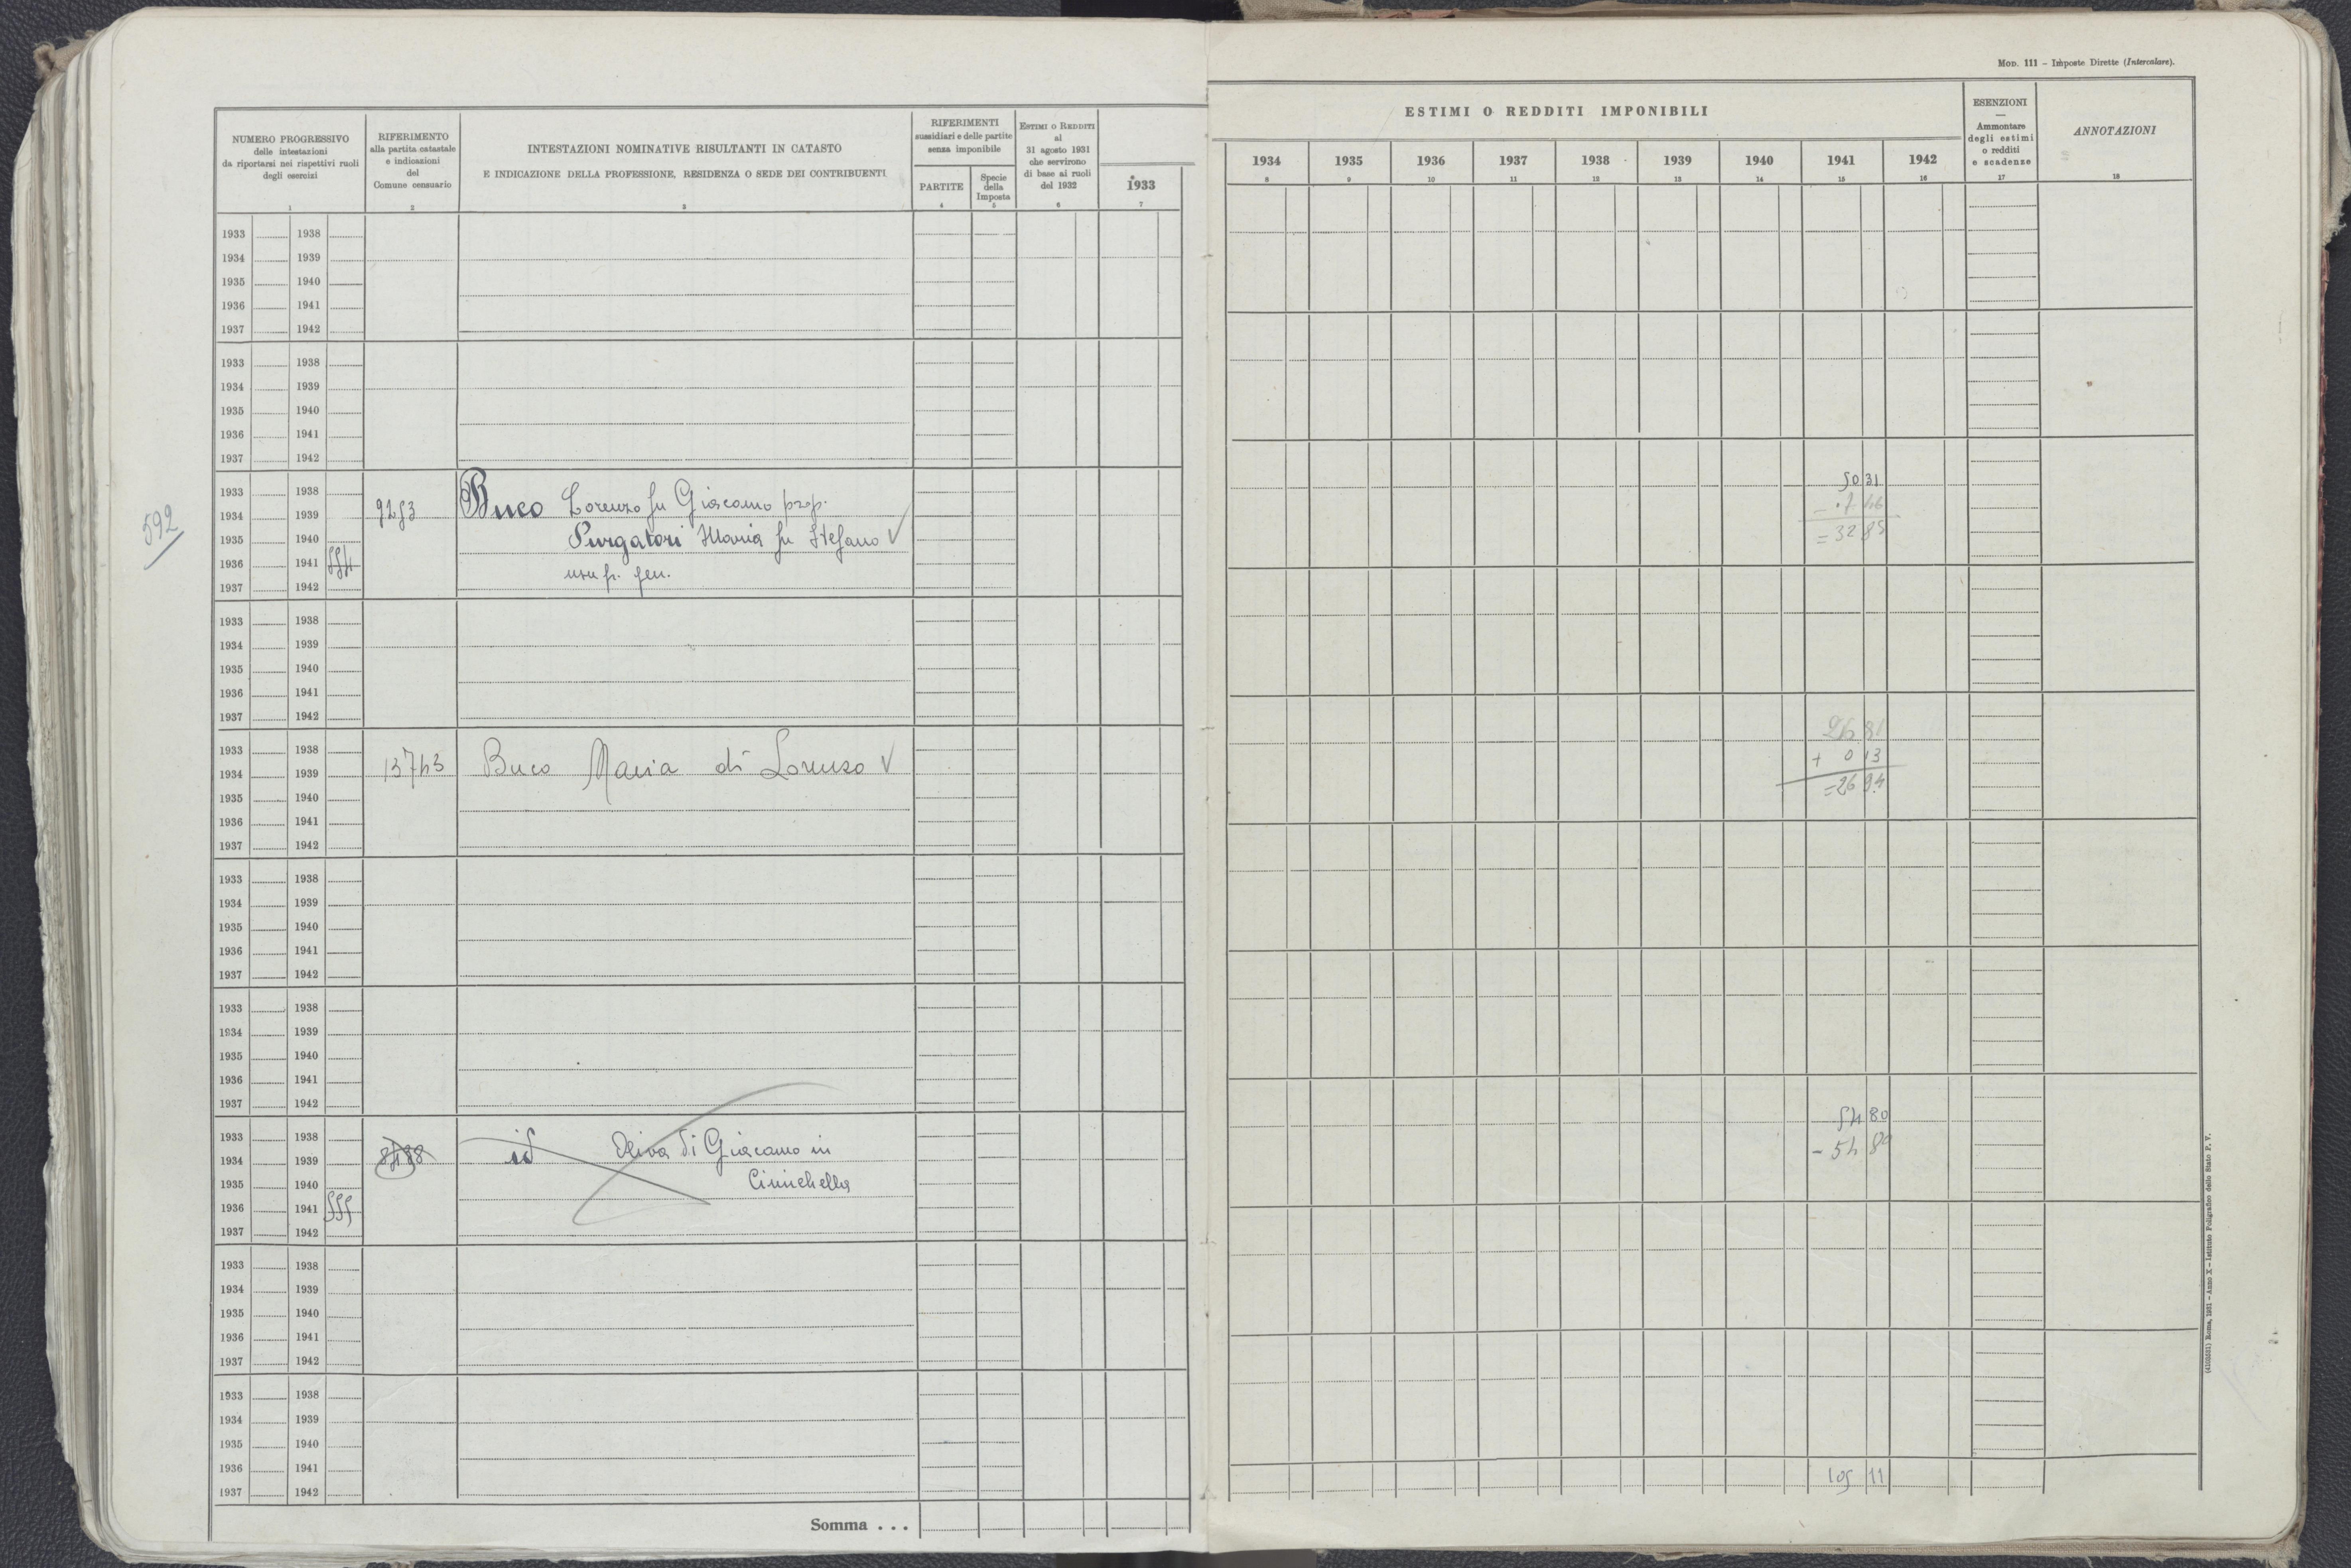 MOD. 111 – Imposte Dirette (Intercalare).
NUMERO PROGRESSIVO
delle intestazioni
da riportarsi nei rispettivi ruoli
degli esercizi
1
RIFERIMENTO
alla partita catastale
e indicazioni
del
Comune censuario
2
INTESTAZIONI NOMINATIVE RISULTANTI IN CATASTO
E INDICAZIONE DELLA PROFESSIONE, RESIDENZA O SEDE DEI CONTRIBUENTI
3
RIFERIMENTI
sussidiari e delle partite
senza imponibile
PARTITE
4
Specie
della
Imposta
5
ESTIMI O REDDITI
al
31 agosto 1931
che servirono
di base ai ruoli
del 1932
6
1933
7
ESTIMI O REDDITI IMPONIBILI
1934 1935 1936 1937 1938 1939 1940 1941 1942
8 9 10 11 12 13 14 15 16
ESENZIONI
Ammontare
degli estimi
o redditi
e scadenze
17
ANNOTAZIONI
18
1933 1938
1934 1939
1935 1940
1936 1941
1937 1942
1933 1938
1934 1939
1935 1940
1936 1941
1937 1942
592
1933 1938
1934 1939 9253 Buco Lorenzo fu Giacomo prop.
1935 1940 Purgatori Maria fu Stefano V
1936 1941 554
1937 1942 usufr. gen.
50 31
= 32 85
1933 1938
1934 1939
1935 1940
1936 1941
1937 1942
1933 1938
1934 1939 13743 Buco Maria di Lorenzo V
1935 1940
1936 1941
1937 1942
26 81
+ 0 13
= 26 94
1933 1938
1934 1939
1935 1940
1936 1941
1937 1942
1933 1938
1934 1939
1935 1940
1936 1941
1937 1942
1933 1938
1934 1939 id di Giacomo in
1935 1940 Cimichella
1936 1941 555
1937 1942
54 80
- 54 80
1933 1938
1934 1939
1935 1940
1936 1941
1937 1942
1933 1938
1934 1939
1935 1940
1936 1941
1937 1942
105 11
Somma . . .
(4103681) Roma, 1931 – Anno X – Istituto Poligrafico dello Stato P. V.